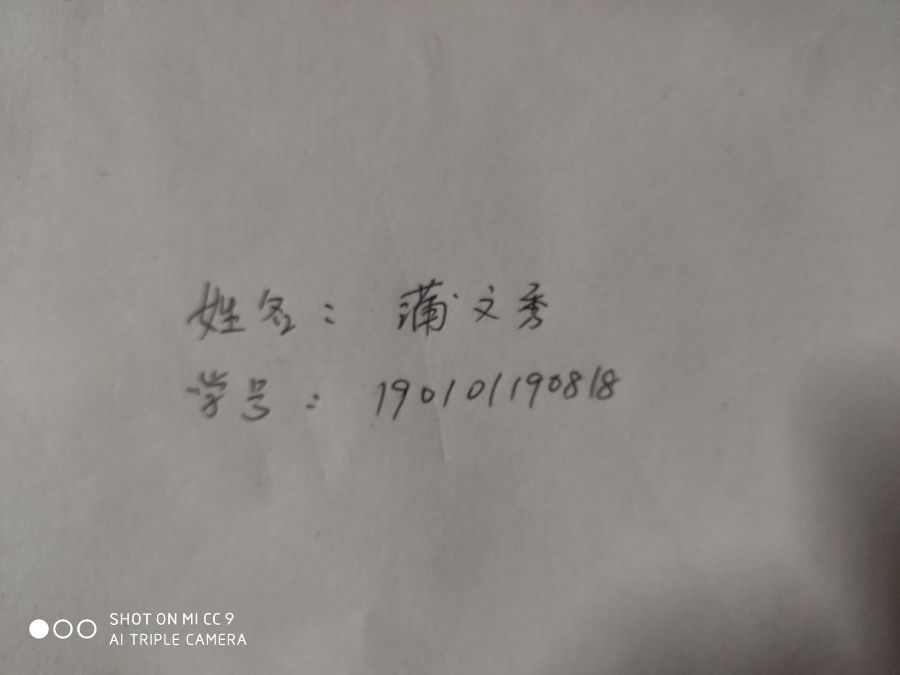 姓名：蒲文秀
学号：190101190818
SHOT ON MI CC 9
AI TRIPLE CAMERA